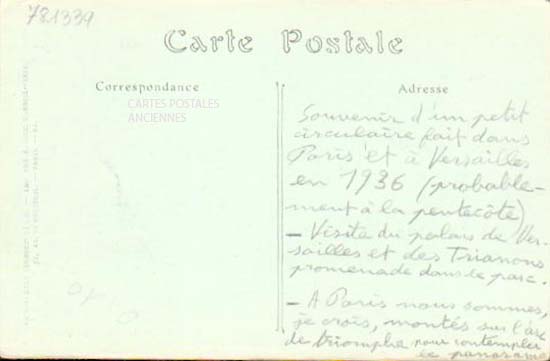 781339
Carte Postale
Correspondance
Adresse
CARTES POSTALES
ANCIENNES
Souvenir d'un petit
circulaire fait dans
Paris et à Versailles
en 1936 (probable-
ment à la pentecôte)
- Visite du palais de Ver-
sailles et des Trianons
promenade dans le parc.
- A Paris nous sommes,
je crois, montés sur l'arc
de triomphe pour contempler
le panorama